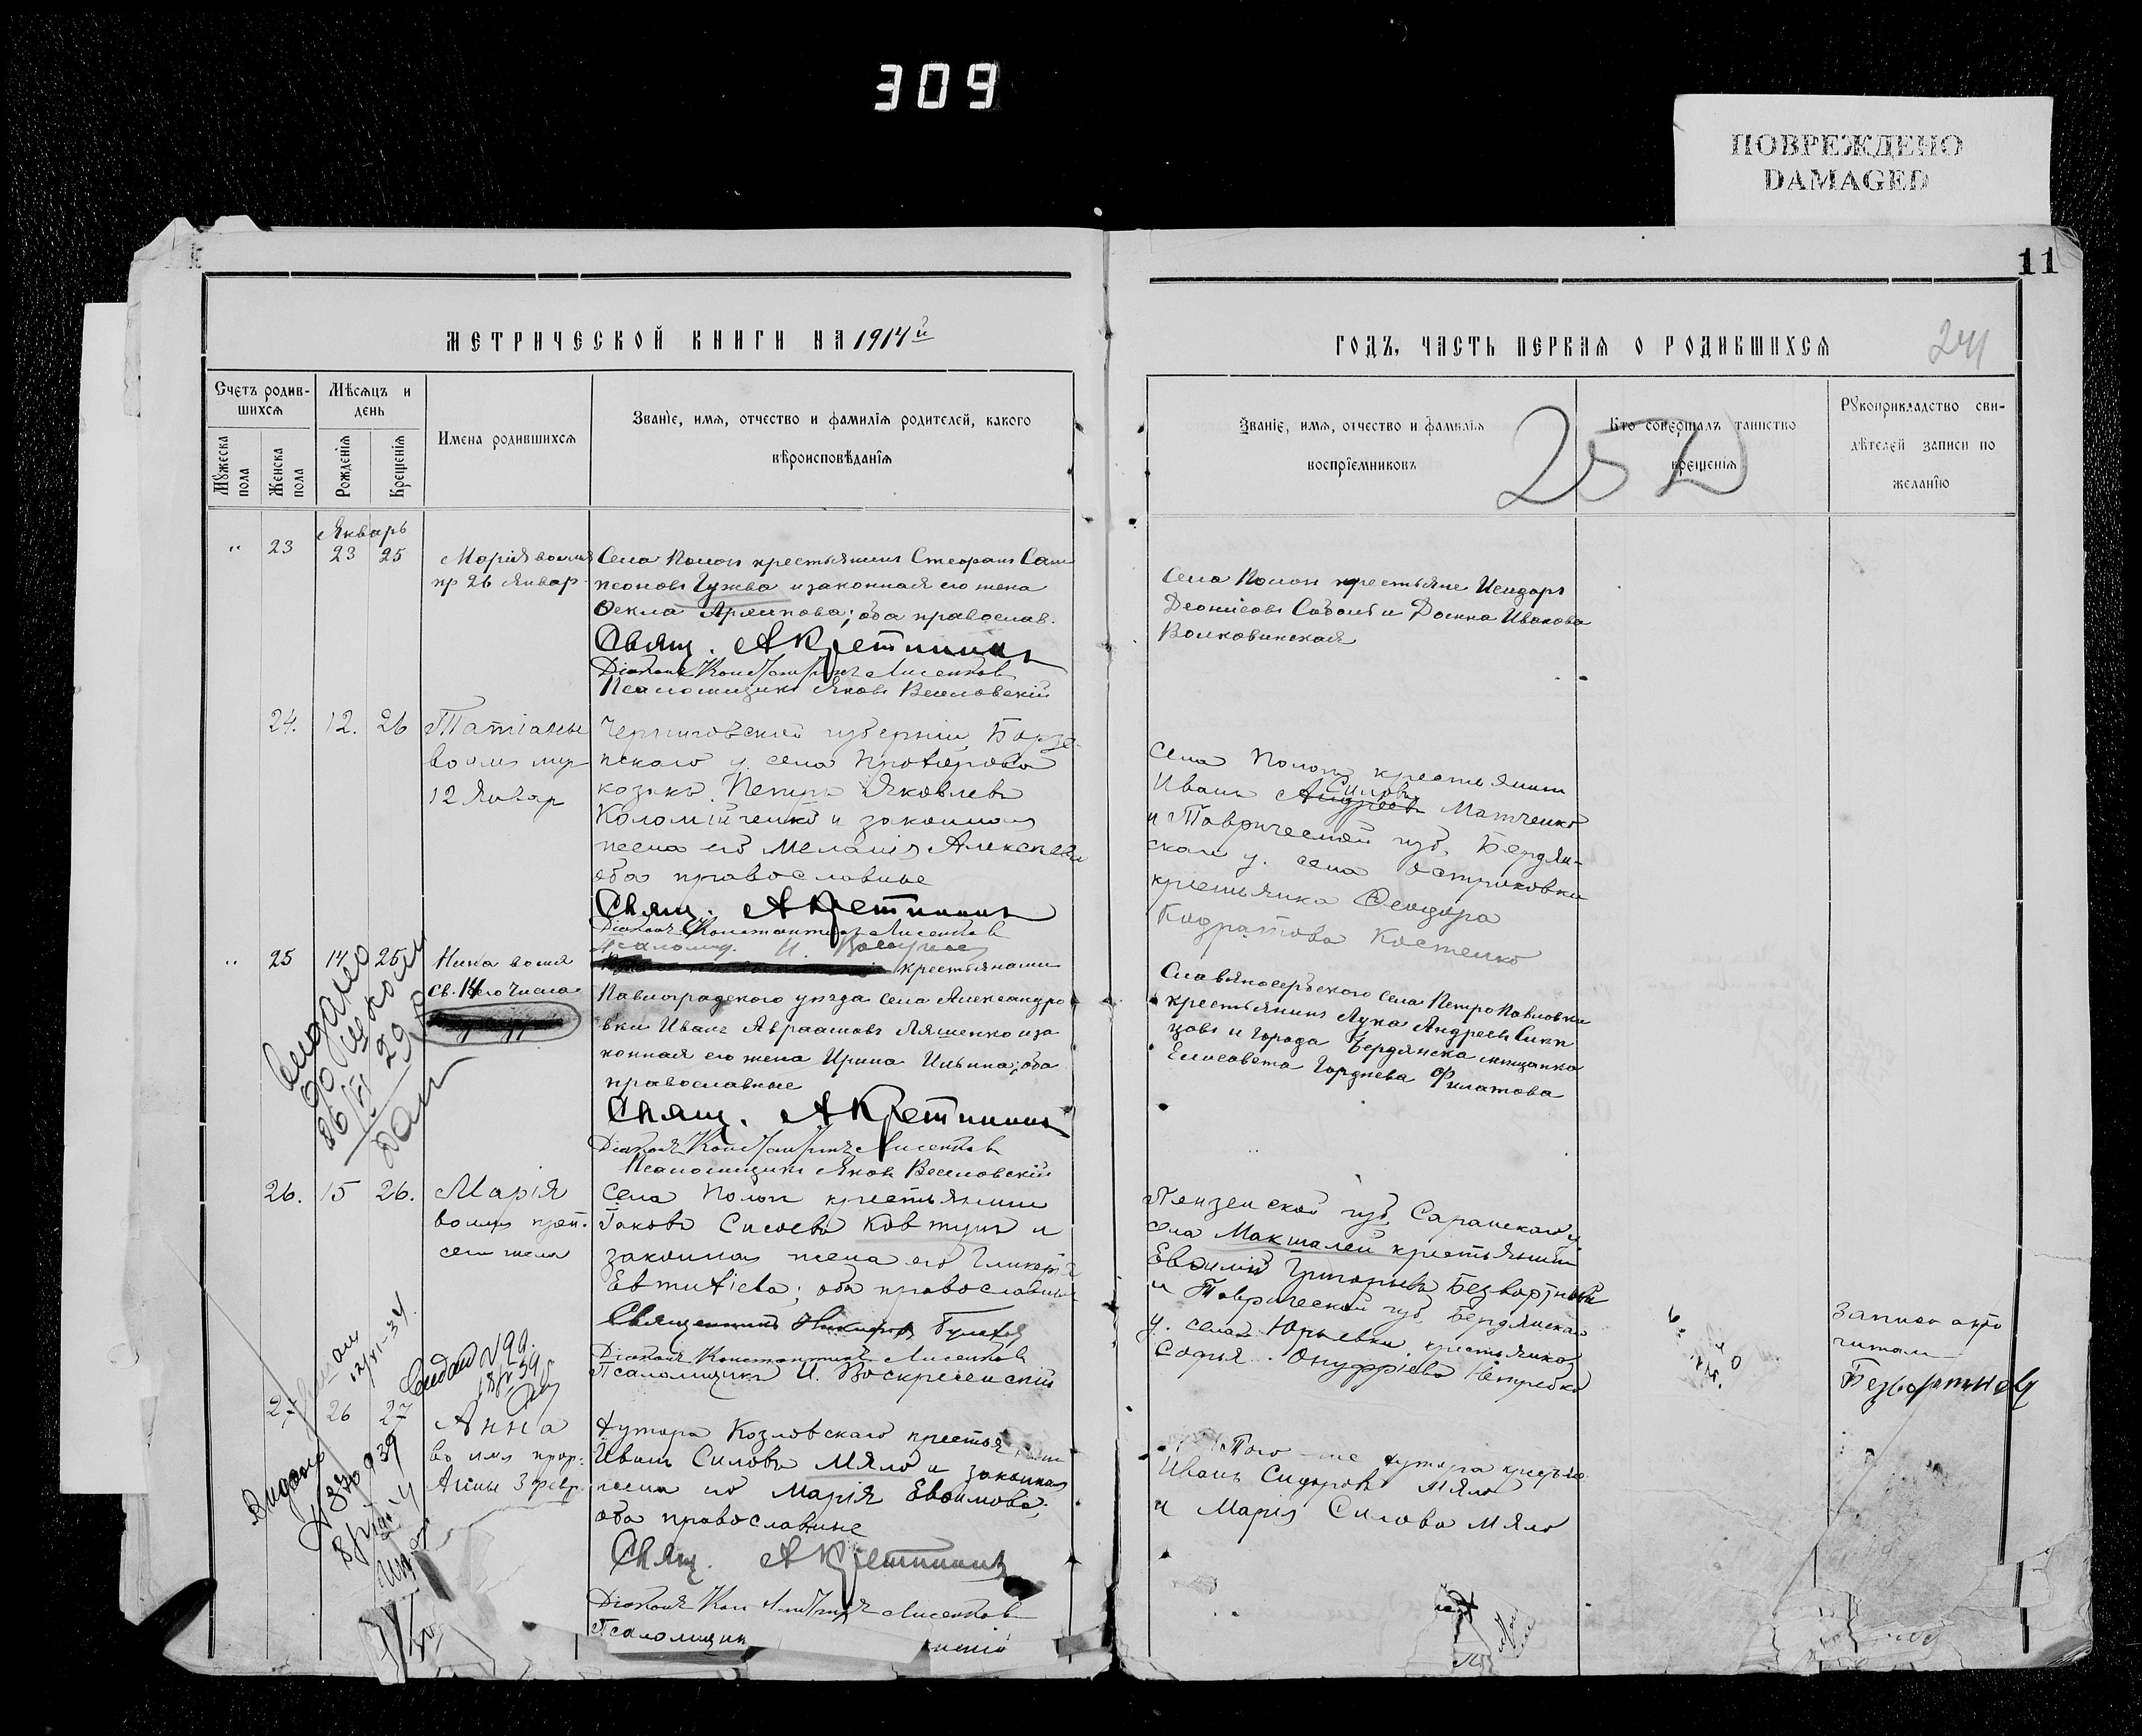 309
ПОВРЕЖДЕНО
DAMAGED
11
МЕТРИЧЕСКОЙ КНИГИ НА 1914й
ГОДЪ, ЧАСТЬ ПЕРВАЯ О РОДИВШИХСЯ
241
Счетъ родив-
шихся
Мѣсяцъ и
день
Имена родившихся
Званіе, имя, отчество и фамилія родителей, какого
вѣроисповѣданія
Мужеска
пола
Женска
пола
Рожденія
Крещенія
Званіе, имя, отчество и фамилія
воспріемниковъ
Кто совершалъ таинство
крещенія
Рукоприкладство сви-
дѣтелей записи по
желанію
252
Январь
" 23 23 25
Марія во имя
пр 26 Январ
Села Пологъ крестьянинъ Стефанъ Сам
псоновъ Гужва и законная его жена
Ѳекла Архипова; оба православ.
Свящ. А Кретининъ
Діаконъ Константинъ Лисенков
Псаломщикъ Яковъ Веселовскій
Села Пологъ крестьяне Исидоръ
Деонисовъ Соболь и Домна Иванова
Волковинская
24. 12. 26
Татіаны
во имя муч
12 Январ
Черниговской губерніи, Борзе-
нскаго у. села Прохорово
козакъ Петръ Яковлевъ
Коломійченко и законная
жена его Меланія Алексѣева
оба православные
Свящ. А Кретининъ
Діаконъ Константинъ Лисенков
Псаломщ. И. Воскресен
Села Пологъ крестьянинъ
Силовъ
Иванъ Андреевъ Матченко
и Таврической губ. Бердян-
скаго у. села Остриковки
крестьянка Ѳеодора
Кодратова Костенко
" 25 14 25
Нина во имя
св. 14го числа
крестьянинъ
Павлоградского уезда села Александро
вки Иванъ Авраамовъ Ляшенко и за
конная его жена Ирина Ильина; оба
православные
Свящ. А Кретининъ
Діаконъ Константинъ Лисенков
Псаломщикъ Яковъ Веселовскій
Славяносербского села Петро Павловки
крестьянинъ Лука Андреевъ Сикп
цовъ и города Бердянска мещанка
Елисавета Гордиева Филатова
26. 15 26.
Марія
во имя преп.
сего числа
Села Пологъ крестьянинъ
Іаковъ Сисоевъ Ковтунъ и
законная жена его Гликерія
Евтихіева; оба православные
Священникъ
Діаконъ Константинъ Лисенков
Псаломщикъ И. Воскресенскій
Пензенской губ. Саранскаго у.
села Макшалей крестьянинъ
Евѳимій Григорьевъ Безвортный
и Таврической губ. Бердянскаго
у. села Юрьевки крестьянка
Софья Онуфріева Непребка
Запись акто
читалъ
27 26 27
Анна
во имя прор.
Анны 3 февр.
Хутора Козловскаго крестьянинъ
Иванъ Силовъ Мяло и законная
жена его Марія Евѳимова;
оба православные
Свящ. А Кретининъ
Діаконъ Константинъ Лисенков
Псаломщик
Того же хутора крестьяне
Иванъ Сидоровъ Мяло
и Марія Силова Мяло